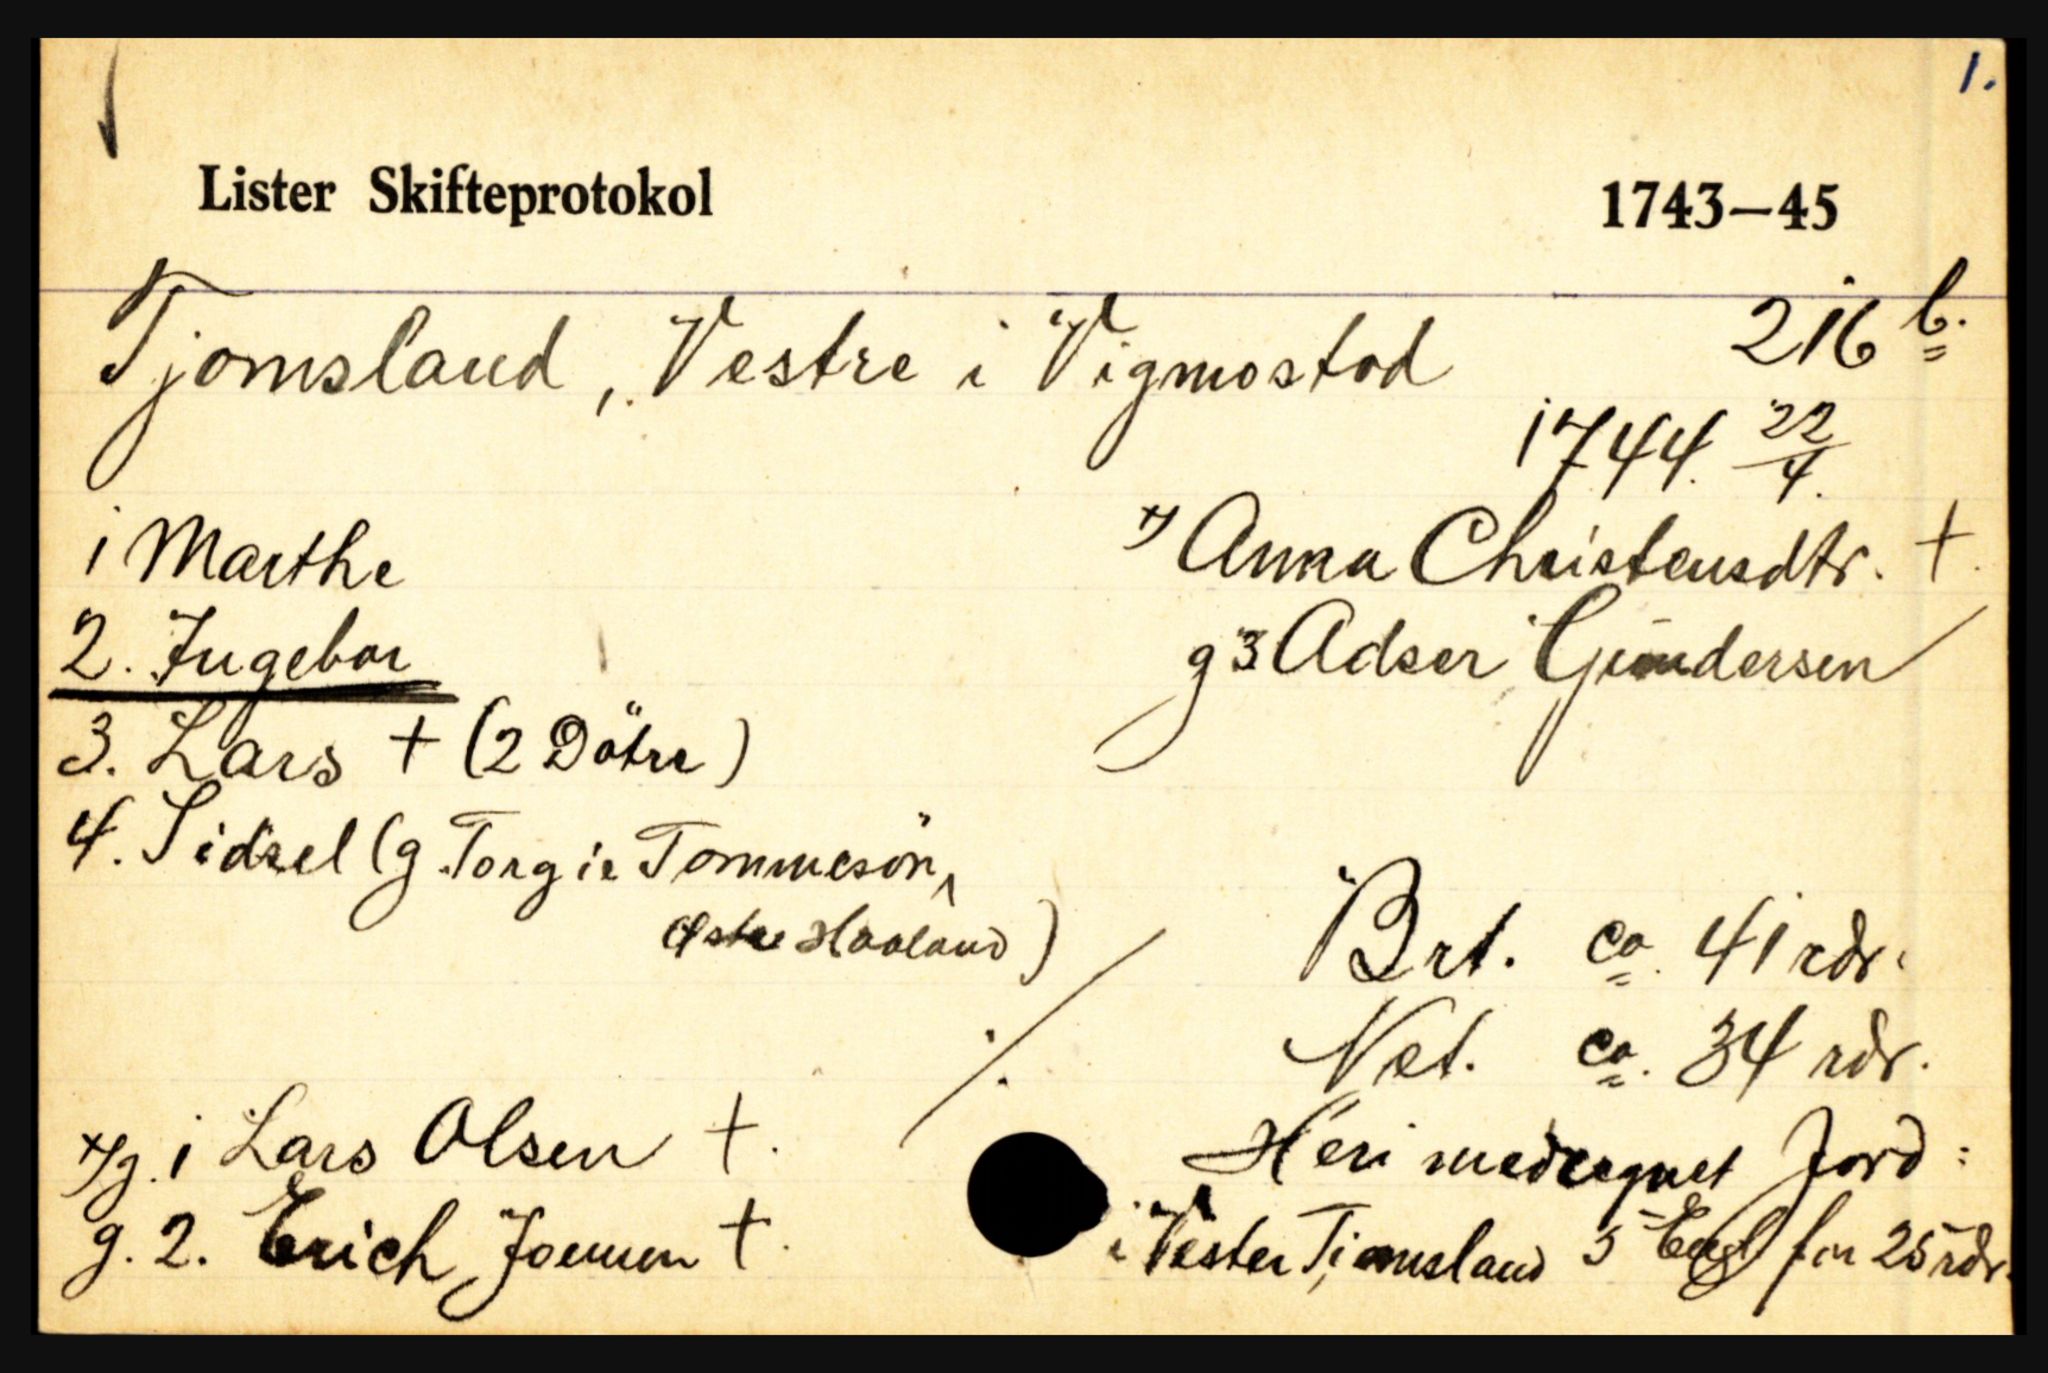 1.
Lister Skifteprotokol 1743—45
Tjomsland, Vestre i Vigmostad 216 b.
1744 22/4.
x) Anna Christensdtr. +.
g 3 Adser Gundersen
1 Marthe
2. Ingebor
3. Lars + (2 Dötre)
4. Sidsel (g. Torgie Tommesön,
Östre Haaland)
Brt. ca. 41 rdr.
Net. ca. 34 rdr.
Heri medregnet Jord:
i Vester Tiomsland 5 Engl for 25 rdr.
x) g. 1 Lars Olsen +.
g. 2. Erich Joensen +.